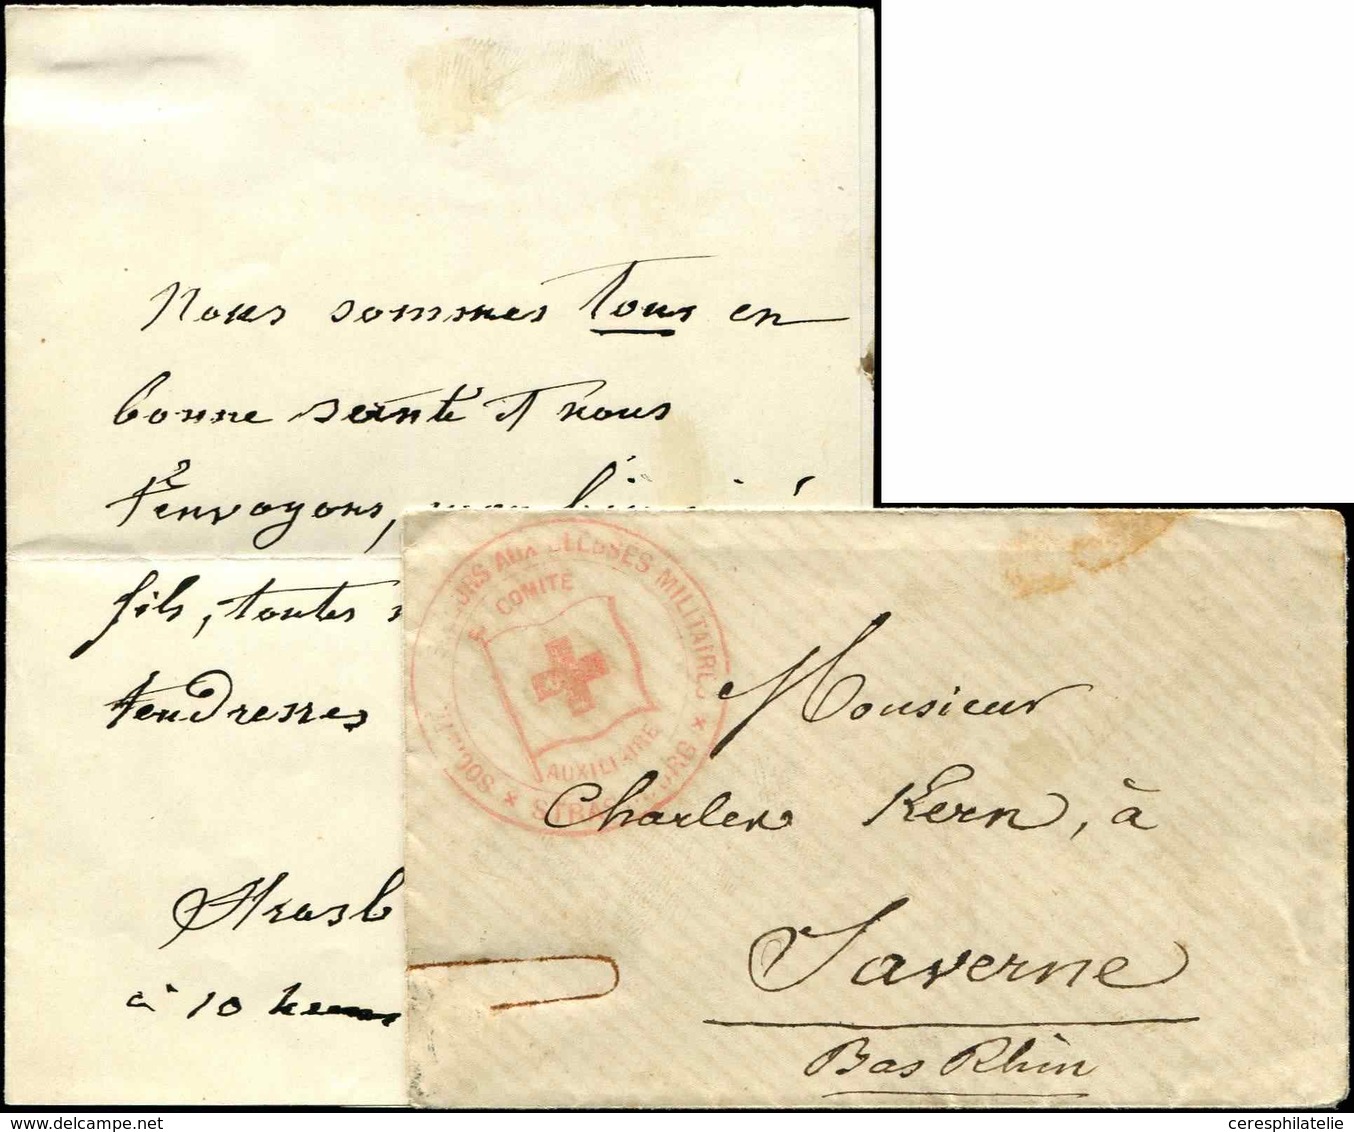 Nous sommes tous en
bonne santé et nous
t'envoyons, mon
fils, toutes
tendresses
Strasb
à 10 heures
SOCIÉTÉ DE SECOURS AUX BLESSÉS MILITAIRES
COMITÉ
AUXILIAIRE
* STRASBOURG *
Monsieur
Charles Kern, à
Saverne
Bas Rhin
delcampe.net
ceresphilatelie